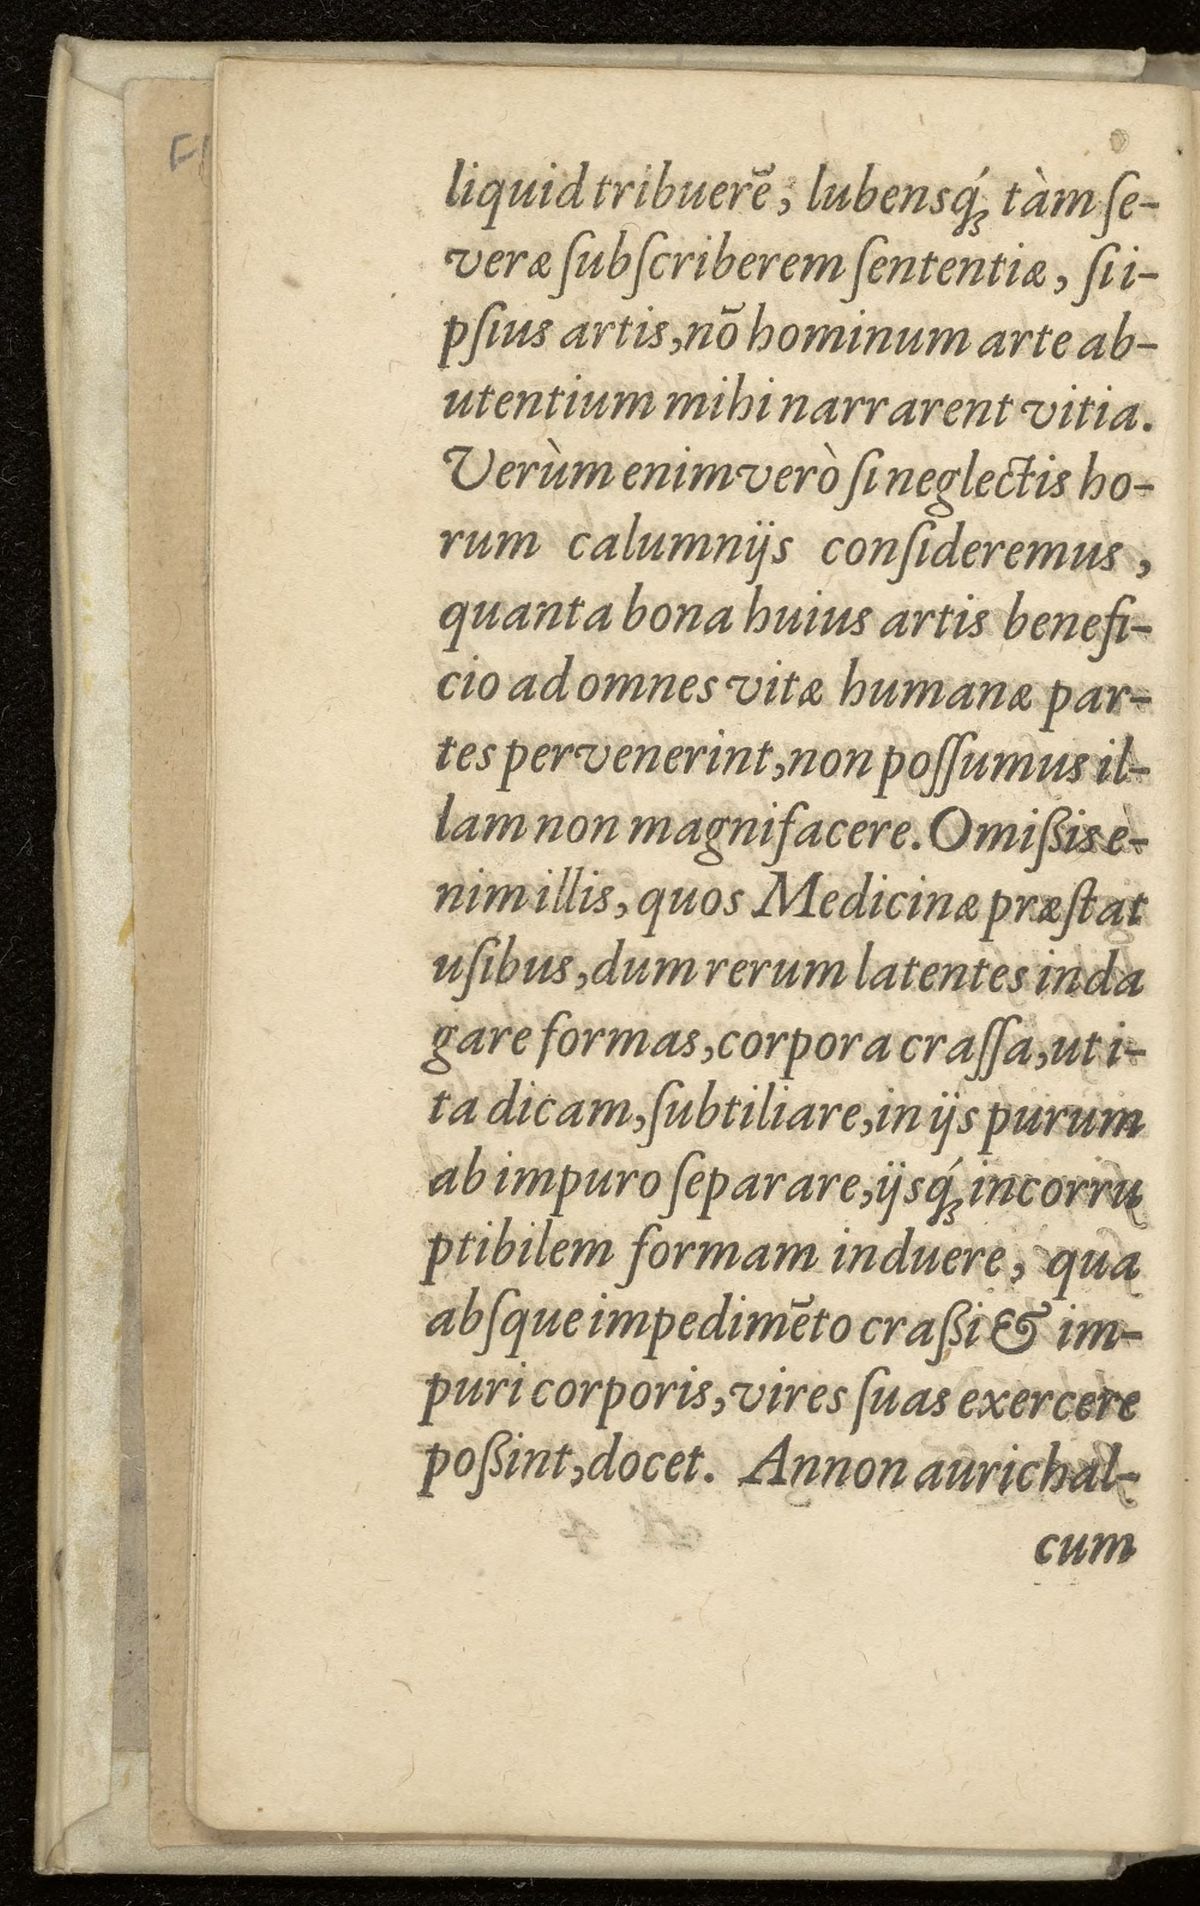 liquid tribuerẽ, lubensq́ꝫ tàm ſe-
veræ ſubſcriberem ſententiæ, ſi i-
pſius artis, nõ hominum arte ab-
utentium mihi narrarent vitia.
Verùm enimverò ſi neglectis ho-
rum calumnijs conſideremus,
quanta bona huius artis benefi-
cio ad omnes vitæ humanæ par-
tes pervenerint, non poſſumus il-
lam non magnifacere. Omißis e-
nim illis, quos Medicinæ præſtat
uſibus, dum rerum latentes inda
gare formas, corpora craſſa, ut i-
ta dicam, ſubtiliare, in ijs purum
ab impuro ſeparare, ijsq́ꝫ incorru
ptibilem formam induere, qua
abſque impedimẽto craßi & im-
puri corporis, vires ſuas exercere
poßint, docet. Annon aurichal-
cum